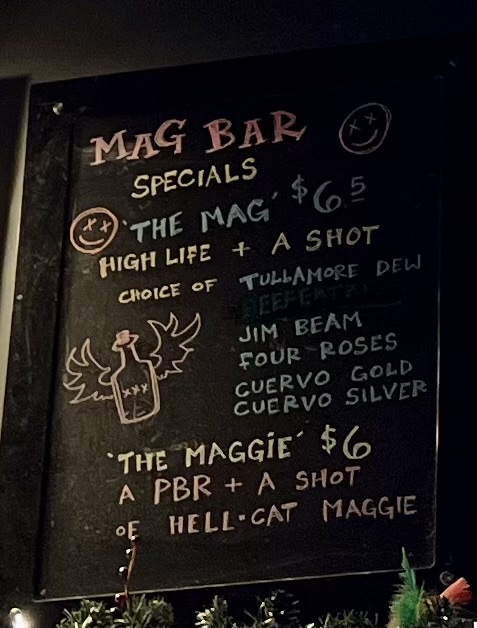 MAG BAR
SPECIALS
'THE MAG' $6.5
HIGH LIFE + A SHOT
CHOICE OF TULLAMORE DEW
BEEFEATER
JIM BEAM
FOUR ROSES
CUERVO GOLD
CUERVO SILVER
XXX
'THE MAGGIE' $6
A PBR + A SHOT
OF HELL-CAT MAGGIE